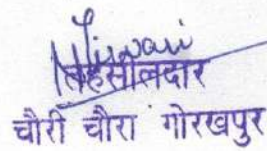 तहसीलदार
चौरी चौरा गोरखपुर